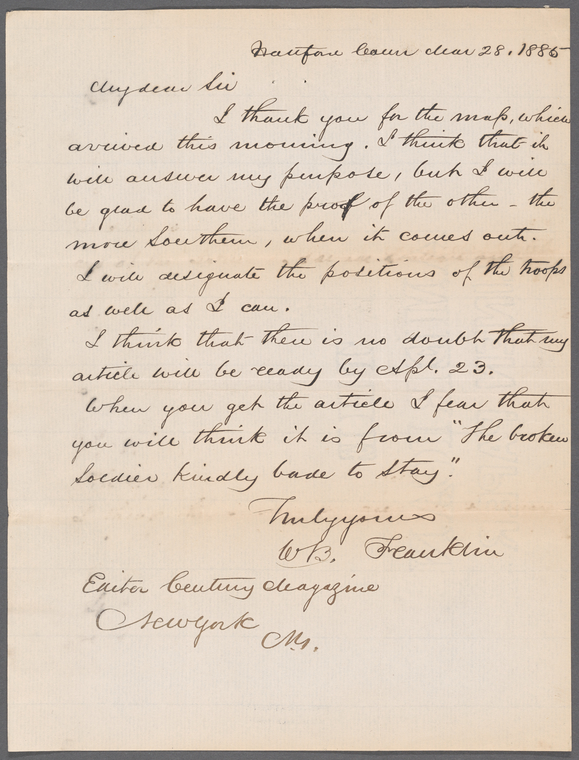 Hartford Conn Mar 28. 1885
My dear Sir
I thank you for the map, which
arrived this morning. I think that it
will answer my purpose, but I will
be glad to have the proof of the other - the
more Southern, when it comes out.
I will designate the positions of the troops
as well as I can.
I think that there is no doubt that my
article will be ready by Apl. 23.
When you get the article I fear that
you will think it is from "The broken
Soldier kindly bade to stay."
Truly yours
W.B. Franklin
Editor Century Magazine
New York